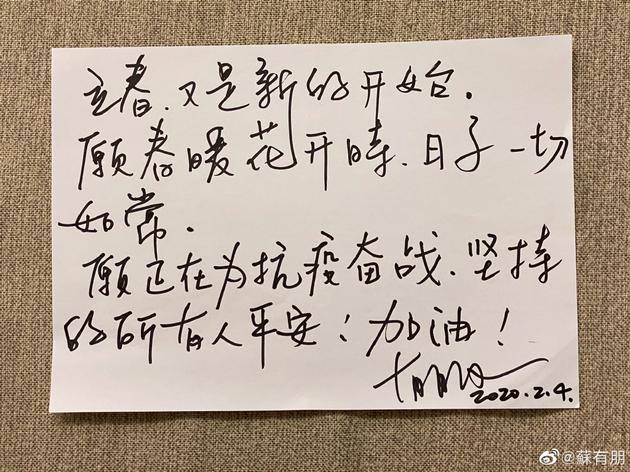 立春.又是新的开始.
愿春暖花开時.日子一切
如常.
愿正在为抗疫奋战.坚持
的所有人平安!加油!
2020.2.4.
@蘇有朋